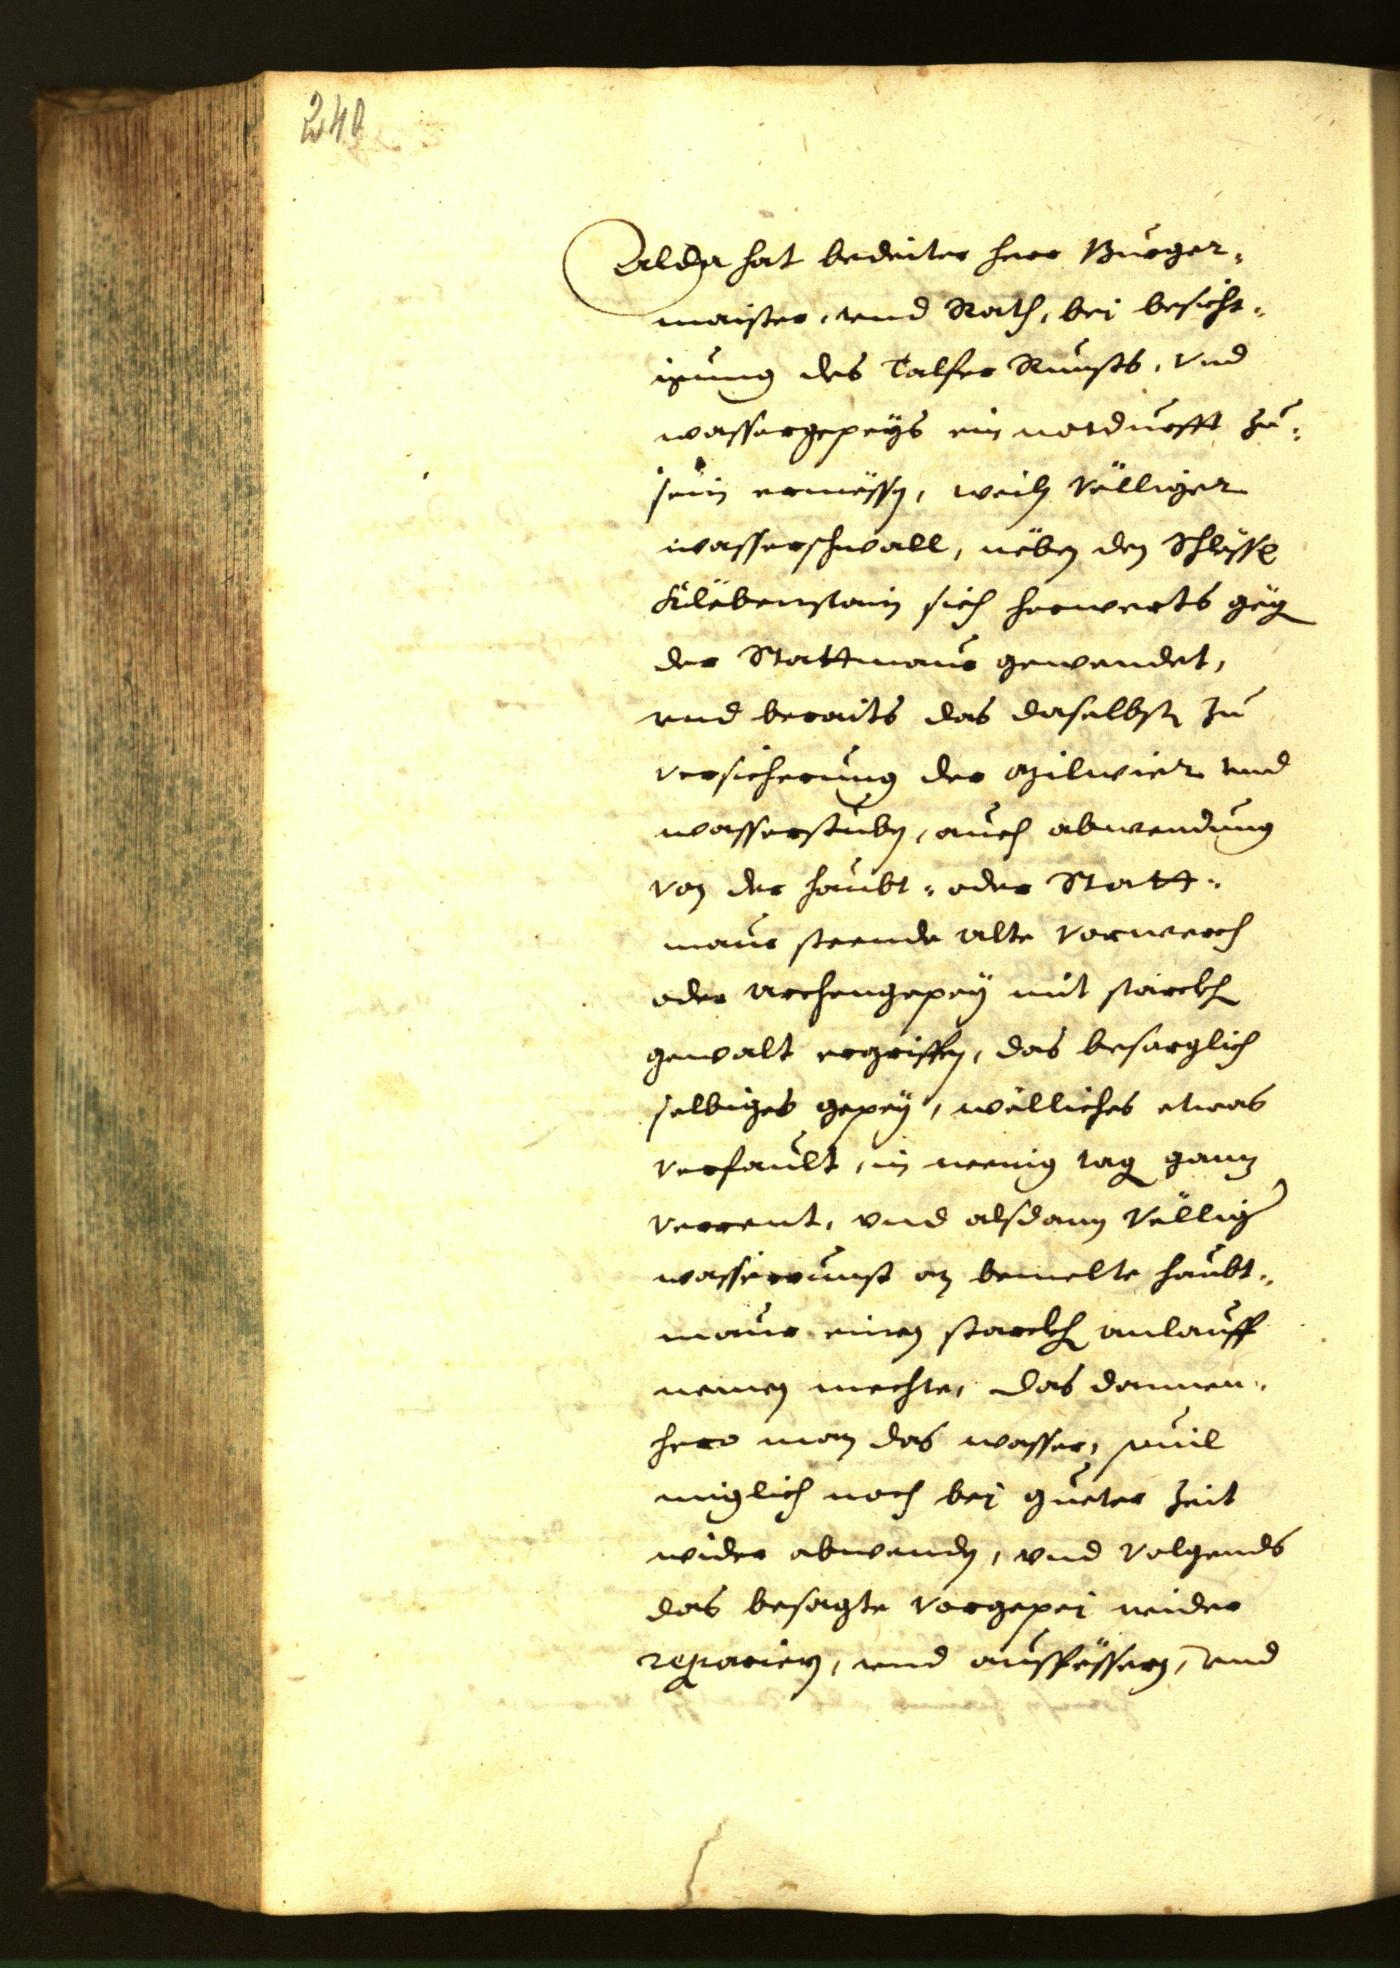 240
Alda hat bedeiter herr Burger-
maister, vnd Rath, bei besicht-
igung des Talfer Runsts, vnd
wassergepeÿs ein notdurfft zu-
sein ermessen, weiln völliger
wasserschwall, neben den Schlossl
Klëbenstain sich herwerts gegen
der Stattmaur gewendet,
vnd beraits das daselbsten zu
versicherung der
wasserstuben, auch abwendung
von der haubt- oder Statt-
maur steende alte vorwerch
oder archengepeÿ mit starckhen
gewalt ergriffen, das besorglich
selbiges gepeÿ, wölliches etwas
verfault, in wenig tag ganz
verrent, vnd alsdann völliger
wasserrunst an bemelte haubt-
maur einen starckhen anlauff
nemen mechte, das dannen-
hero man das wasser, souil
miglich noch bei gueter Zeit
wider abwenden, vnd volgends
das besagte vorgepei wider
reparieren, vnd aufpössern, vnd